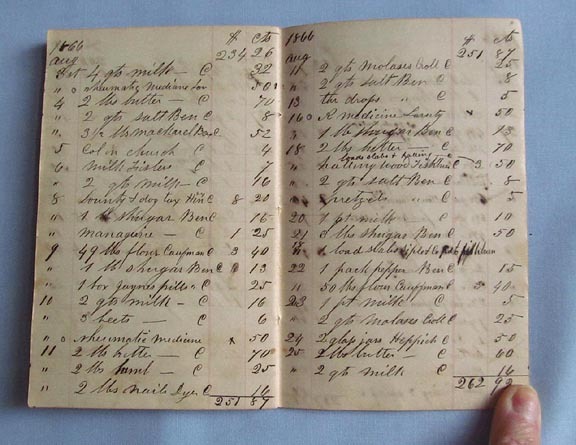 1866 $ cts
Aug 234 26
1st 4 qts milk — C 32
" o rheumatic Medicine 50
4 2 lbs butter — C 70
" 2 qts salt Ben C 8
" 3 1/2 lbs mackarel Ben C 52
5 Col in church C 4
6 milk Sisters C 7
" 2 qts milk — C 16
8 bounty & dog tax C 8 20
" 1 lb shugar Ben C 16
" Managuire — C 1 25
9 49 lbs flour Caufman C 3 40
" 1 lb shugar Ben C 13
" 1 box jaynes pills C 25
10 2 qts milk — C 16
" beets — C 6
" o rheumatic Medicine x 50
11 2 lbs butter — C 70
" 2 lbs — C 25
" 2 lbs nails Dyer C 16
251 87
1866 $ cts
Aug 251 87
11 2 qts Molases C 25
" 2 qts salt Ben C 8
13 drops " C 5
16 o R medicine x 50
" 1 lb shugar Ben C 13
18 2 lbs butter — C 70
loads slabs &
" wood C 3 50
" 2 qts salt Ben C 8
" pretzels " C 5
20 1 pt milk — C 10
21 lbs shugar Ben C 50
" 1 load slabs
22 1 pack pepper Ben C 15
" 50 lbs flour Cauffman C 3 40
23 1 pt milk C 5
" 2 qts Molases C 25
24 2 glass jars Heppich C 50
25 2 lbs butter — C 60
" 2 qts milk C 16
262 92